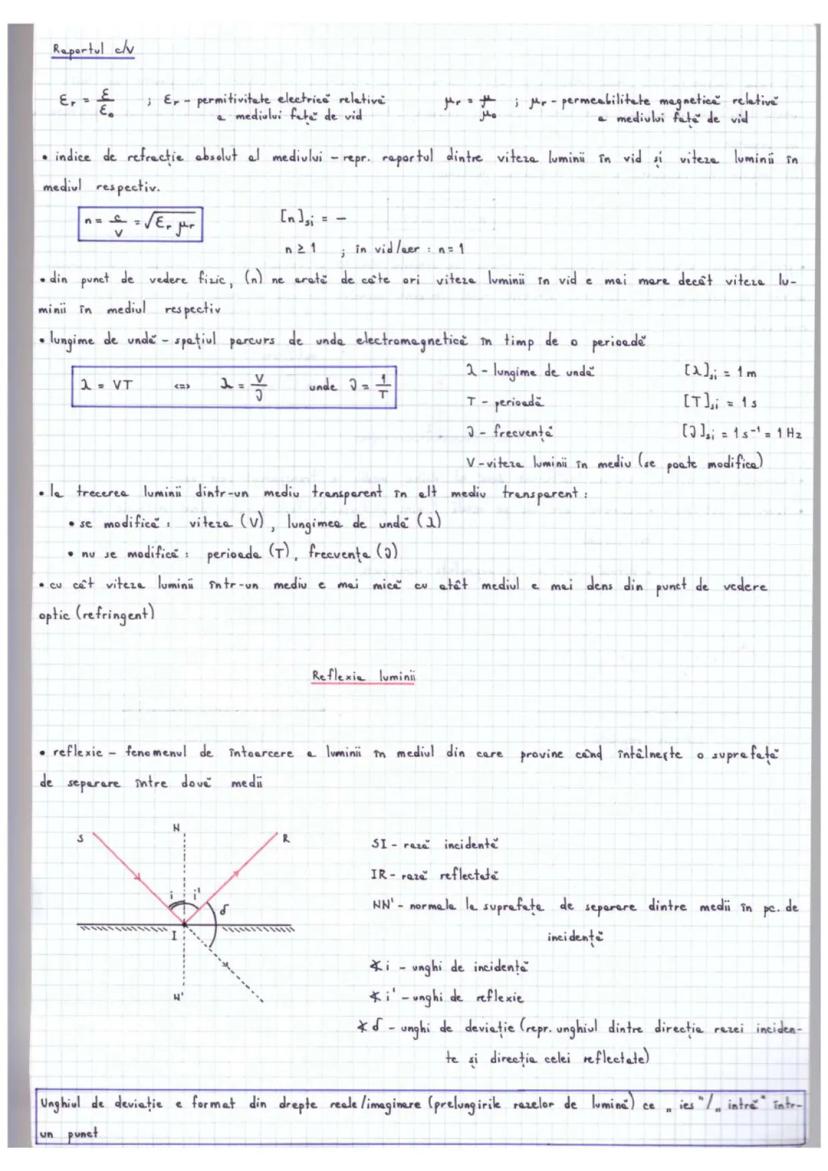 Raportul c/v
εr = ε/ε₀ ; εr - permitivitate electrică relativă
a mediului față de vid
μr = μ/μ₀ ; μr - permeabilitate magnetică relativă
a mediului față de vid
• indice de refracție absolut al mediului - repr. raportul dintre viteza luminii în vid și viteza luminii în
mediul respectiv.
n = c/v = √εr μr
[n]si = -
n ≥ 1 ; în vid/aer : n = 1
• din punct de vedere fizic, (n) ne arată de câte ori viteza luminii în vid e mai mare decât viteza lu-
minii în mediul respectiv
• lungime de undă - spațiul parcurs de unda electromagnetică în timp de o perioadă
λ = VT <=> λ = V/ν unde ν = 1/T
λ - lungime de undă [λ]si = 1 m
T - perioadă [T]si = 1 s
ν - frecvență [ν]si = 1 s⁻¹ = 1 Hz
V - viteza luminii în mediu (se poate modifica)
• la trecerea luminii dintr-un mediu transparent în alt mediu transparent :
• se modifică : viteza (V), lungimea de undă (λ)
• nu se modifică : perioada (T), frecvența (ν)
• cu cât viteza luminii într-un mediu e mai mică cu atât mediul e mai dens din punct de vedere
optic (refringent)
Reflexia luminii
• reflexie - fenomenul de întoarcere a luminii în mediul din care provine când întâlnește o suprafață
de separare între două medii
S N R
i i' δ
I
N'
SI - rază incidentă
IR - rază reflectată
NN' - normala la suprafața de separare dintre medii în pc. de
incidență
∢i - unghi de incidență
∢i' - unghi de reflexie
∢δ - unghi de deviație (repr. unghiul dintre direcția razei inciden-
te și direcția celei reflectate)
Unghiul de deviație e format din drepte reale/imaginare (prelungirile razelor de lumină) ce „ies"/„intră" într-
un punct